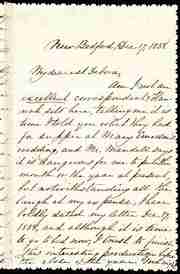 New Bedford, Dec. 17, 1858.
My dearest Debora,
Am I not an
excellent correspondent? Han-
nah sits here, telling me it is
time I told you what they had
for supper at Mary Emerson's
wedding, and Mr. Mandell says
it is dangerous for me to put the
month or the year at present,
but notwithstanding all the
laugh at my expense, I have
boldly dated my letter Dec. 17,
1858, and although it is time
to go to bed now, I trust to finish
this interesting production
to